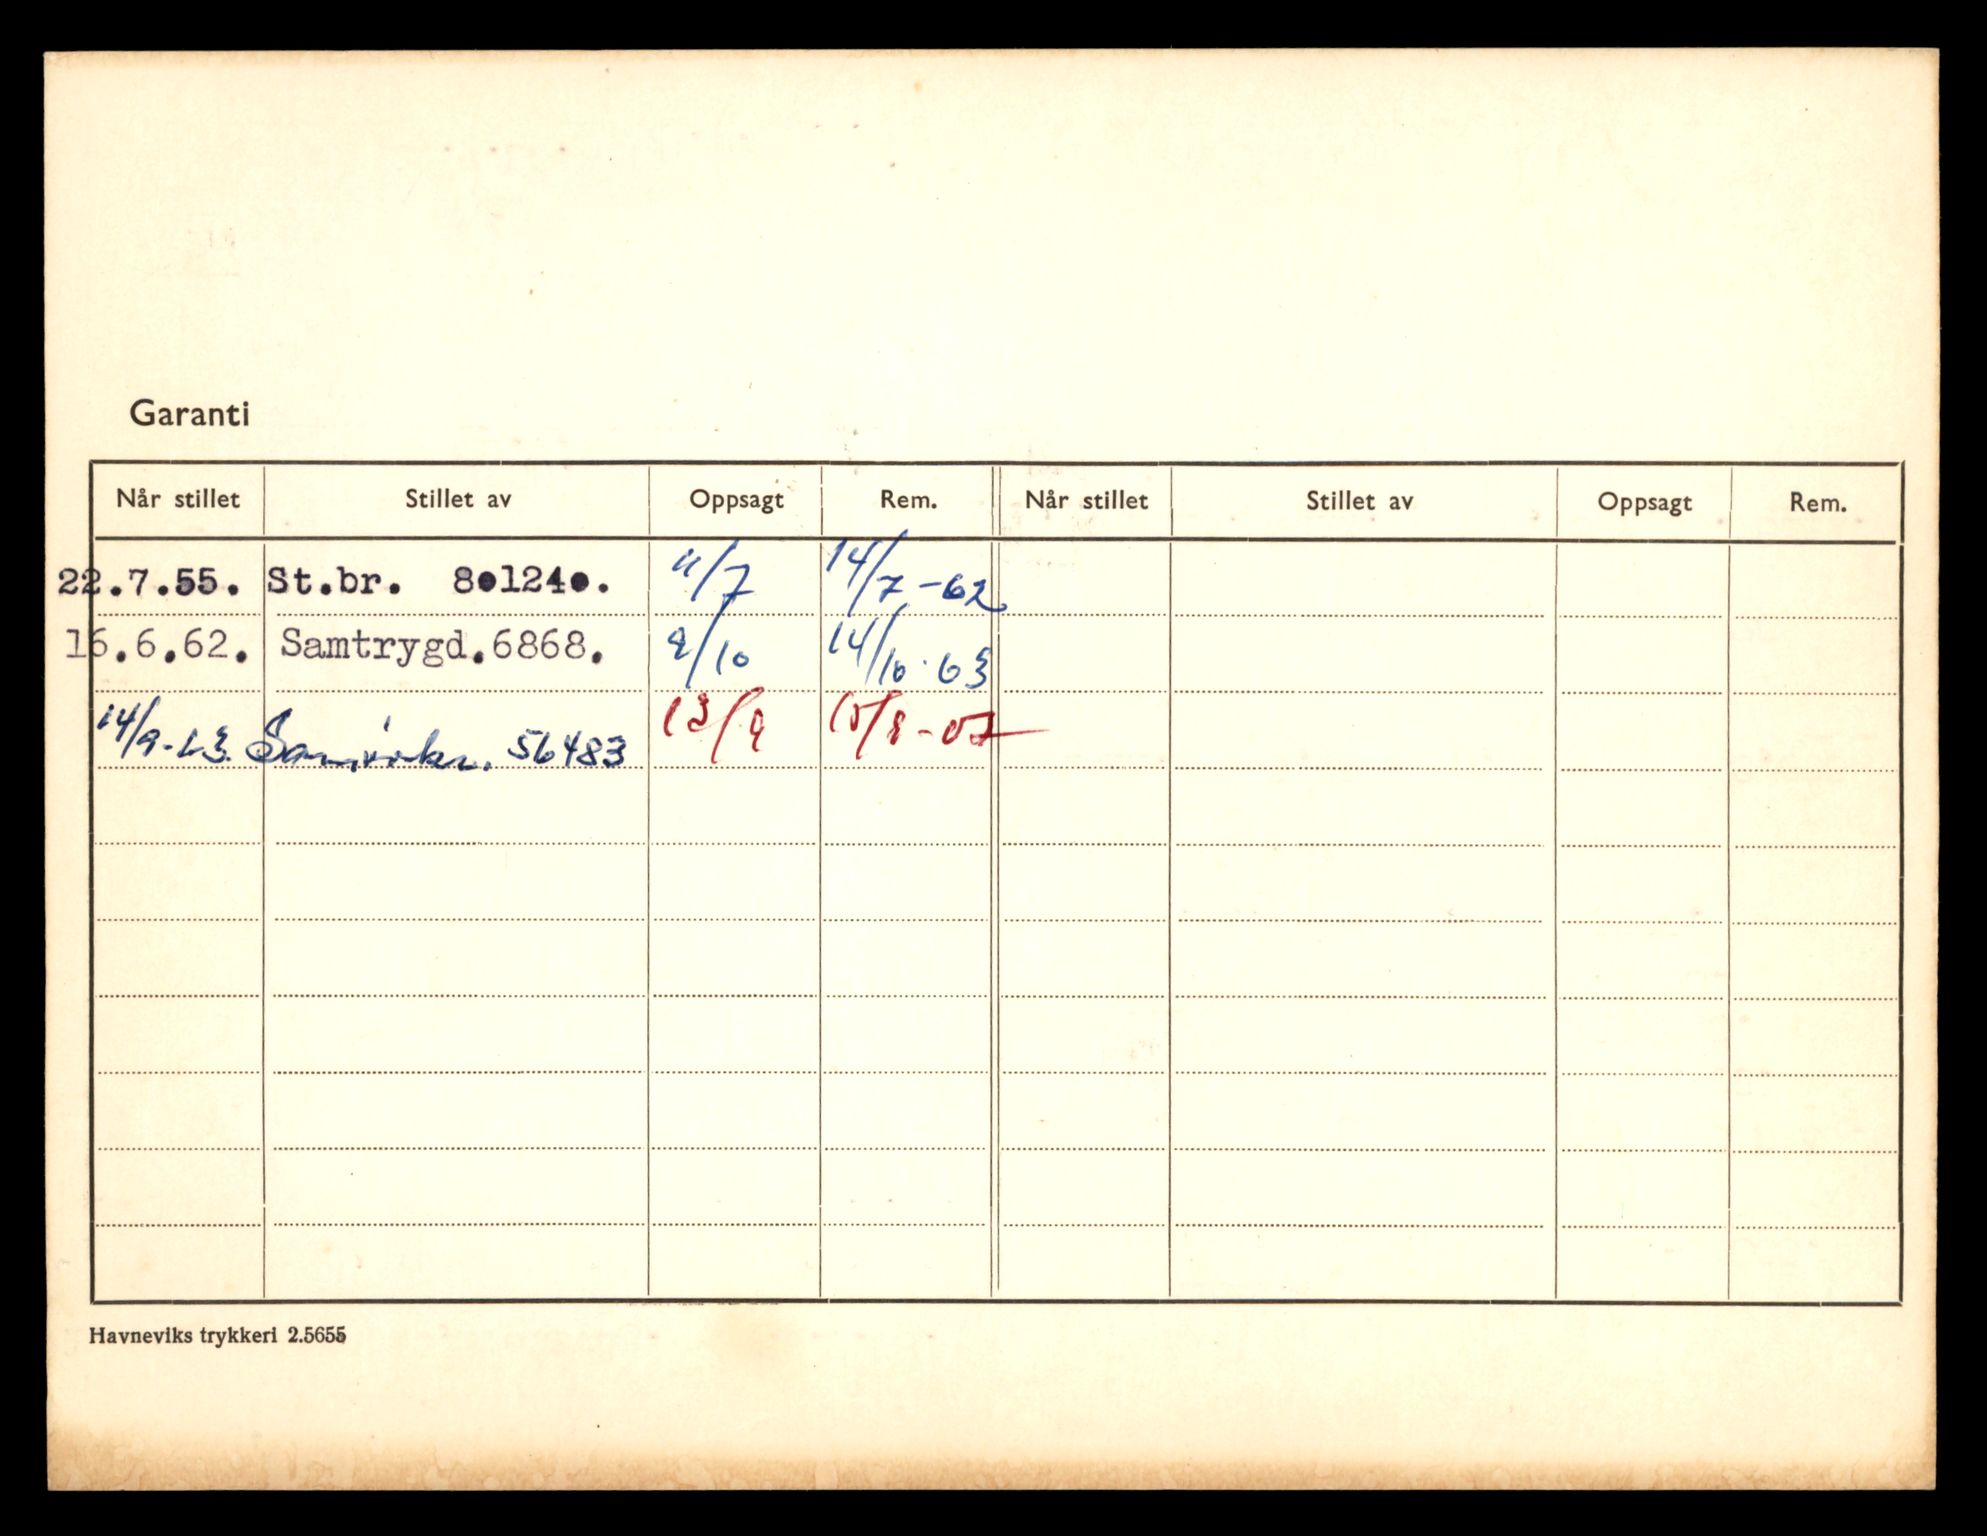 Garanti
Når stillet Stillet av Oppsagt Rem. Når stillet Stillet av Oppsagt Rem.
22.7.55. St.br. 801240. 11/7 14/7-62
16.6.62. Samtrygd.6868. 8/10 14/10-63
14/9-63. Samvirke. 56483 13/9
Havneviks trykkeri 2.5655